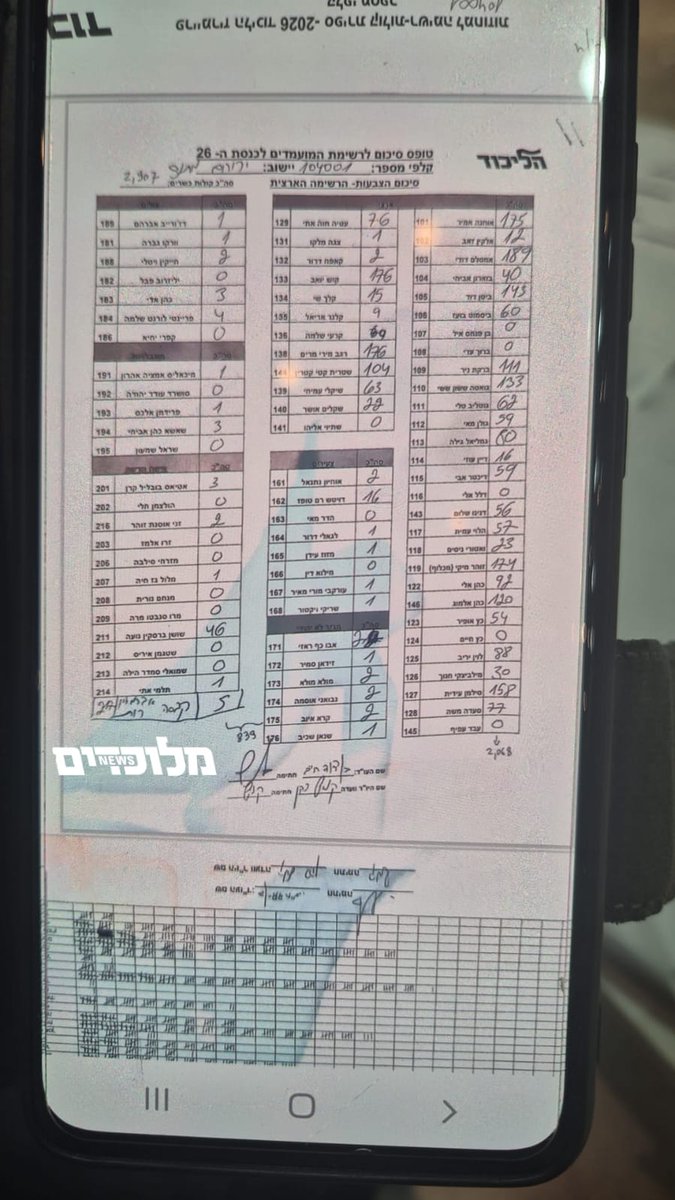 פריימריז הליכוד 2026- ספירת קולות-רשימה למחוזות
הליכוד
טופס סיכום לרשימת המועמדים לכנסת ה- 26
קלפי מספר: 104001 יישוב:
סיכום הצבעות- הרשימה הארצית
סה"כ קולות כשרים: 2,907
סה"כ
101 אוחנה אמיר 175
אלקין זאב 12
103 אמסלם דודי 189
104 בוארון אביחי 40
105 ביטן דוד 143
106 ביסמוט בועז 60
107 בן פנחס איל 0
108 ברוך עדי 0
109 ברקת ניר 111
110 גואטה ששון ששי 133
111 גוטליב טלי 62
112 גולן מאי 59
113 גמליאל גילה 80
114 דיין עוזי 16
115 דיכטר אבי 59
116 דלל אלי 0
143 דנינו שלום 56
117 הלוי עמית 57
118 ואטורי ניסים 23
119 זוהר מיקי (מכלוף) 174
122 כהן אלי 92
146 כהן אלמוג 120
123 כץ אופיר 54
124 כץ חיים 0
125 לוין יריב 88
126 מילביצקי חנוך 30
127 סילמן עידית 158
128 סעדה משה 77
145 עבד עפיף 0
2,068
129 עטיה חוה אתי 76
131 צגה מלקו 1
132 קאפח דרור 2
133 קיש יואב 176
134 קלך שי 15
135 קלנר אריאל 9
136 קרעי שלמה
138 רגב מירי מרים 176
שטרית קטי קטרין 104
139 שיקלי עמיחי 63
140 שקלים אושר 22
141 שתיוי אליהו 0
צעירים סה"כ
161 אוחיון נתנאל 2
162 דויטש רם טופז 16
163 הדר מאי 0
164 לגאלי דרור 1
165 מזוז עידן 1
166 מילוא דין 0
167 עורקבי מורי מאיר 1
168 שריקי ויקטור 1
171 אבו כף ראזי
172 זידאן סמיר 1
173 מולא מולא 2
174 נבואני אוסמה 2
175 קרא איוב 2
176 שנאן שכיב 1
839
סה"כ
180 דז'ורייב אברהם 1
181 וורקו גברה 1
188 חייקין ויטלי 2
182 יליזרוב פבל 0
183 כהן אדי 3
184 פריינטי לורנט שלמה 4
186 קפרי יחיא 0
סה"כ
191 מיכאליס אמציה אהרון 1
192 סושרד עודר יהודה 0
193 פרידמן אלכס 1
194 שאשא כהן אביחי 3
195 שראל שמעון 0
סה"כ
201 אטיאס בובליל קרן 3
202 הולצמן חלי 0
216 זני אוסנת זוהר 2
203 זרו אלמז 0
206 מזרחי סילבה 0
207 מלול גז חיה 1
208 מנחם נורית 0
209 מרו סנבטו מרה 0
211 שושן ברסקין נועה 46
212 שטגמן איריס 0
213 שמואלי סמדר הילה 0
214 תלמי אתי 1
5
מלוכדים
NEWS
שם העו"ד: חתימה
שם היו"ר ועדה חתימה
שם היו"ר וועדה חתימה
שם העו"ד: חתימה